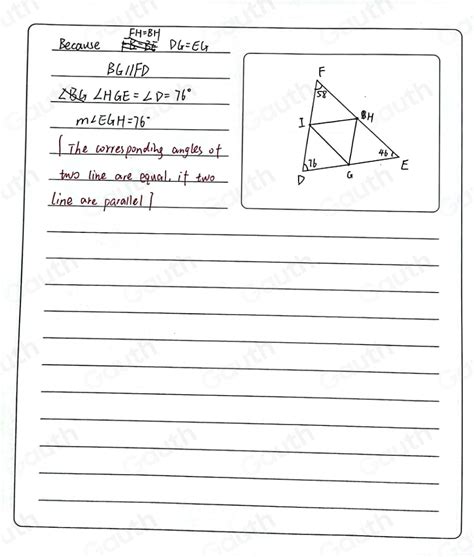 FH=BH
Because DG=EG
BG//FD
∠BG ∠HGE=∠D=76°
m∠EGH=76°
[The corresponding angles of
two line are equal, if two
line are parallel]
F
58
I
BH
46
E
76
D
G
Gauth